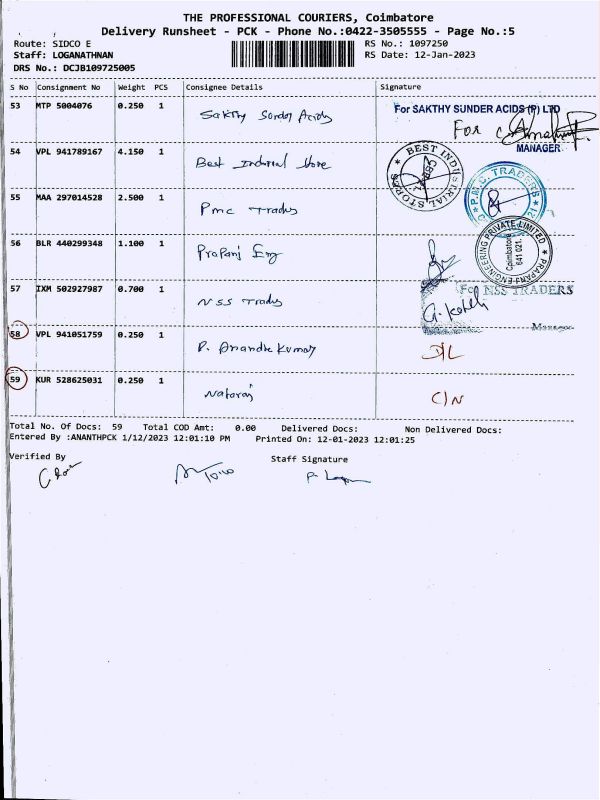 THE PROFESSIONAL COURIERS, Coimbatore
Delivery Runsheet - PCK - Phone No.:0422-3505555 - Page No.:5
Route: SIDCO E RS No.: 1097250
Staff: LOGANATHNAN RS Date: 12-Jan-2023
DRS No.: DCJB109725005
S No Consignment No Weight PCS Consignee Details Signature
53 MTP 5004076 0.250 1 Sakthy Sunder Acids For SAKTHY SUNDER ACIDS (P) LTD
For
MANAGER
54 VPL 941789167 4.150 1 Best Industrial Store BEST INDUSTRIAL STORES
55 MAA 297014528 2.500 1 Pmc Traders P.M.C. TRADERS
56 BLR 440299348 1.100 1 Prapanj Eng PRAPANJ ENGINEERING PRIVATE LIMITED
Coimbatore
641 021.
57 IXM 502927987 0.700 1 NSS Traders For NSS TRADERS
Manager
58 VPL 941051759 0.250 1 P. Anandhakumar D/L
59 KUR 528625031 0.250 1 Nataraj C/N
Total No. Of Docs: 59 Total COD Amt: 0.00 Delivered Docs: Non Delivered Docs:
Entered By :ANANTHPCK 1/12/2023 12:01:10 PM Printed On: 12-01-2023 12:01:25
Verified By Staff Signature